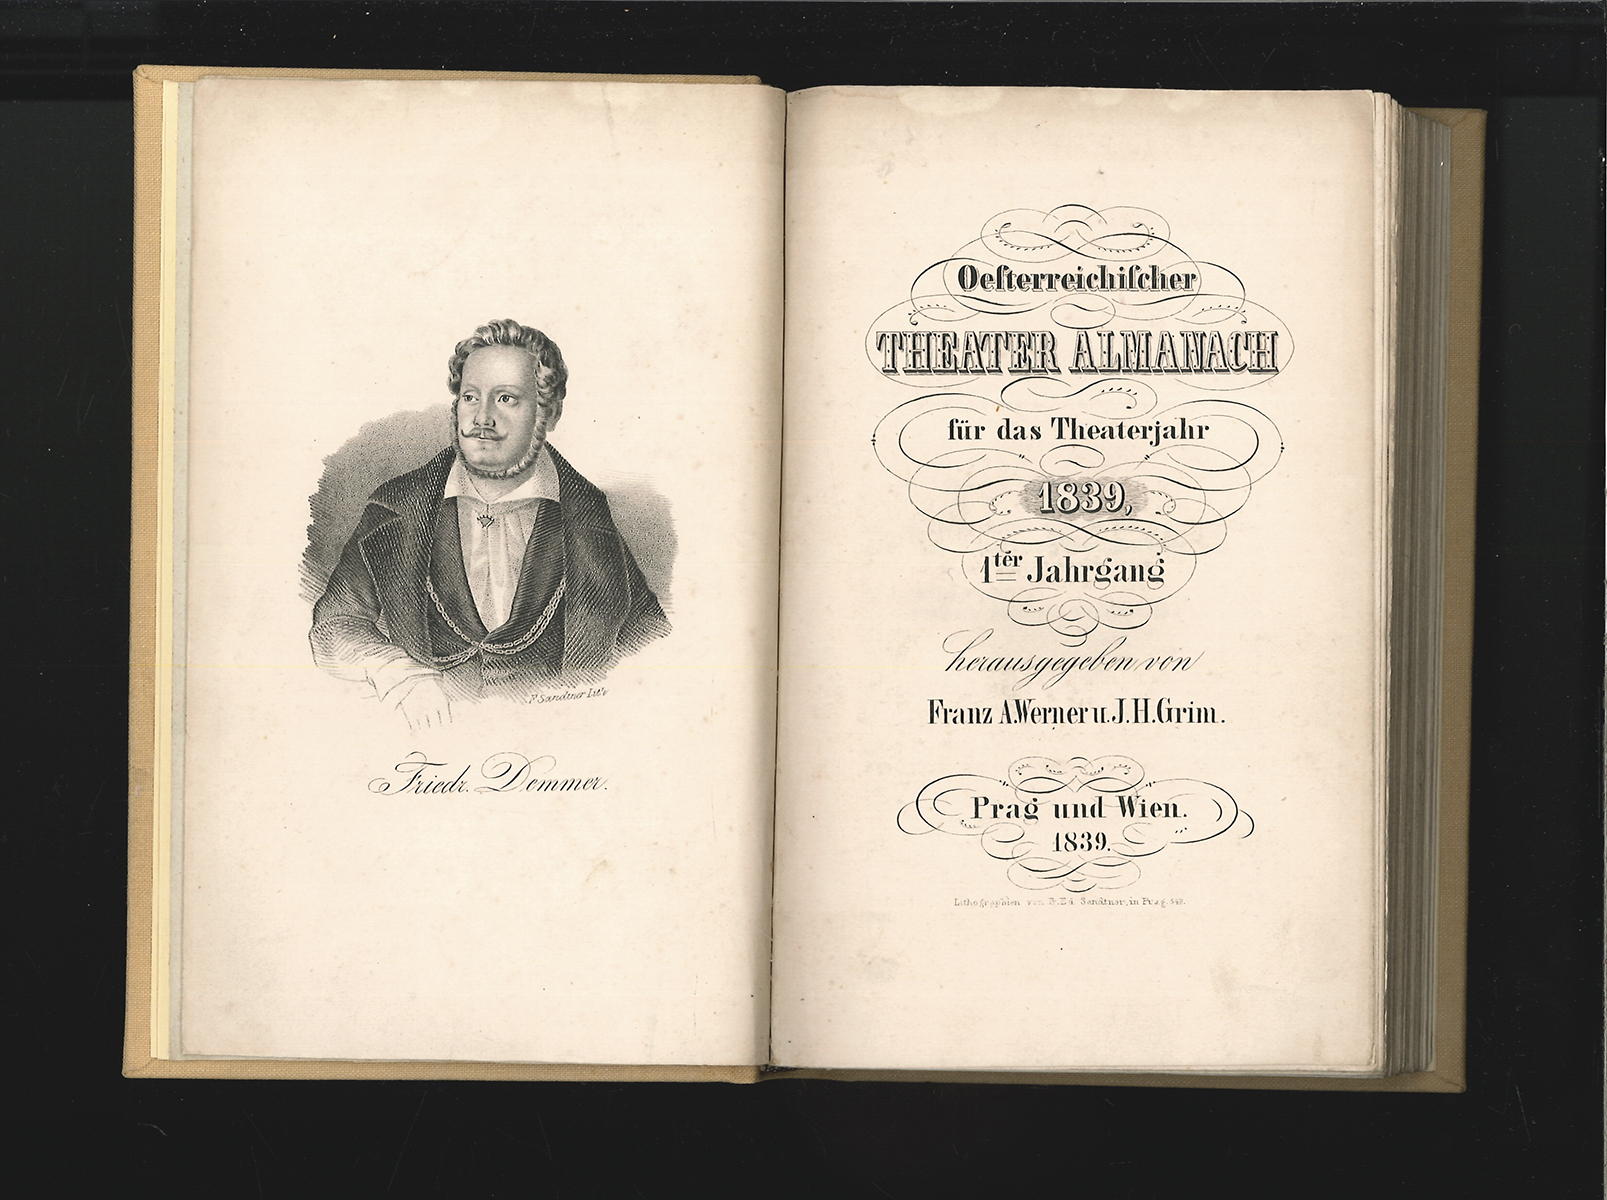 F. Sandtner Lith.
Friedr. Demmer.
Oeſterreichiſcher
THEATER ALMANACH
für das Theaterjahr
1839,
1ter Jahrgang
herausgegeben von
Franz A. Werner u. J. H. Grim.
Prag und Wien.
1839.
Lithographien von Fr. Ed. Sandtner, in Prag.